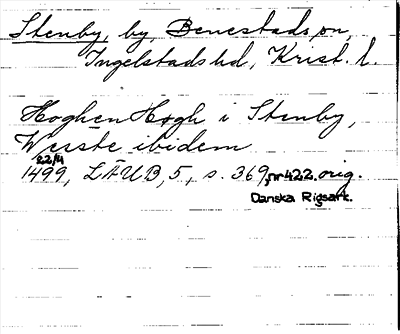 Stenby, by, Benestads sn,
Ingelstads hd, Krist. l.
Hoghen Høgh i Stenby,
Werste ibidem
22/4
1499, LÄUB, 5, s. 369, nr 422. orig.
Danska Rigsark.